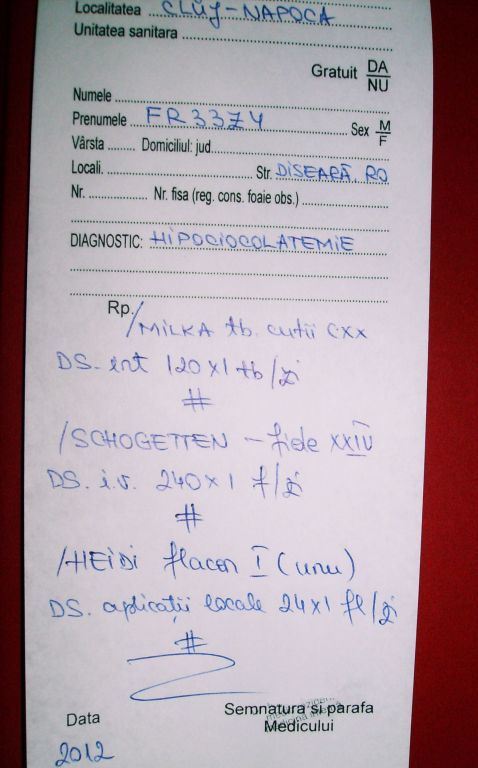 Localitatea CLUJ-NAPOCA
Unitatea sanitara
Gratuit DA
NU
Numele
Prenumele FR33Z4 Sex M
F
Vârsta Domiciliul: jud
Locali. Str. DISEARĂ. RO
Nr. Nr. fisa (reg. cons. foaie obs.)
DIAGNOSTIC: HIPOCIOCOLATEMIE
Rp.
/MILKA tb. cutii CXX
DS. int 120x1 tb/zi
#
/SCHOGETTEN - fiole XXIV
DS. i.v. 240x1 f/zi
#
/HEIDI flacon I (unu)
DS. aplicații locale 24x1 fl/zi
#
Data Semnatura si parafa
Medicului
2012